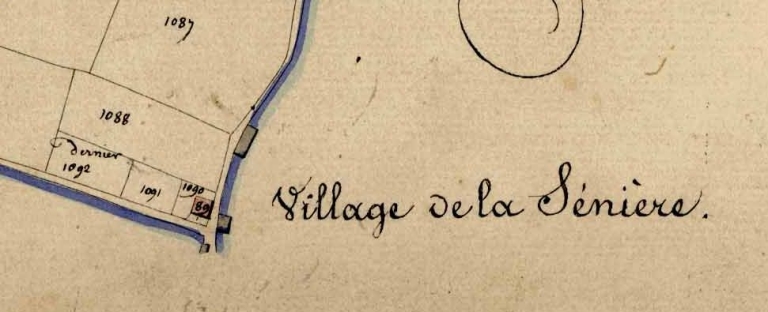 1087
1088
dernier
1092
1091
1090
89
Village de la Sénière.